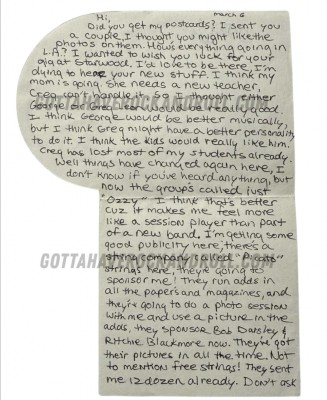 March 6
Hi,
Did you get my postcards? I sent you
a couple, I thought you might like the
photos on them. Hows everything going in
L.A.? I wanted to wish you luck for your
gig at Starwood. I'd love to be there, I'm
dying to hear your new stuff. I think my
mom's going. She needs a new teacher,
Greg can't handle it? So I thought either
George or Greg would be really good
I think George would be better musically,
but I think Greg might have a better personality
to do it. I think the kids would really like him.
Greg has lost most of my students already.
Well things have changed again here, I
don't know if you've heard anything, but
now the group's called just
"Ozzy" I think that's better
cuz it makes me feel more
like a session player than part
of a new band. I'm getting some
good publicity here, there's a
string company called "Picato"
strings here, they're going to
sponsor me! They run adds in
all the papers and magazines, and
they're going to do a photo session
with me and use a picture in the
adds. They sponsor Bob Daisley &
Ritchie Blackmore now. They've got
their pictures in all the time. Not
to mention free strings! They sent
me 12 dozen already. Don't ask
GOTTAHAVEROCKANDROLL.COM
GOTTAHAVEROCKANDROLL.COM